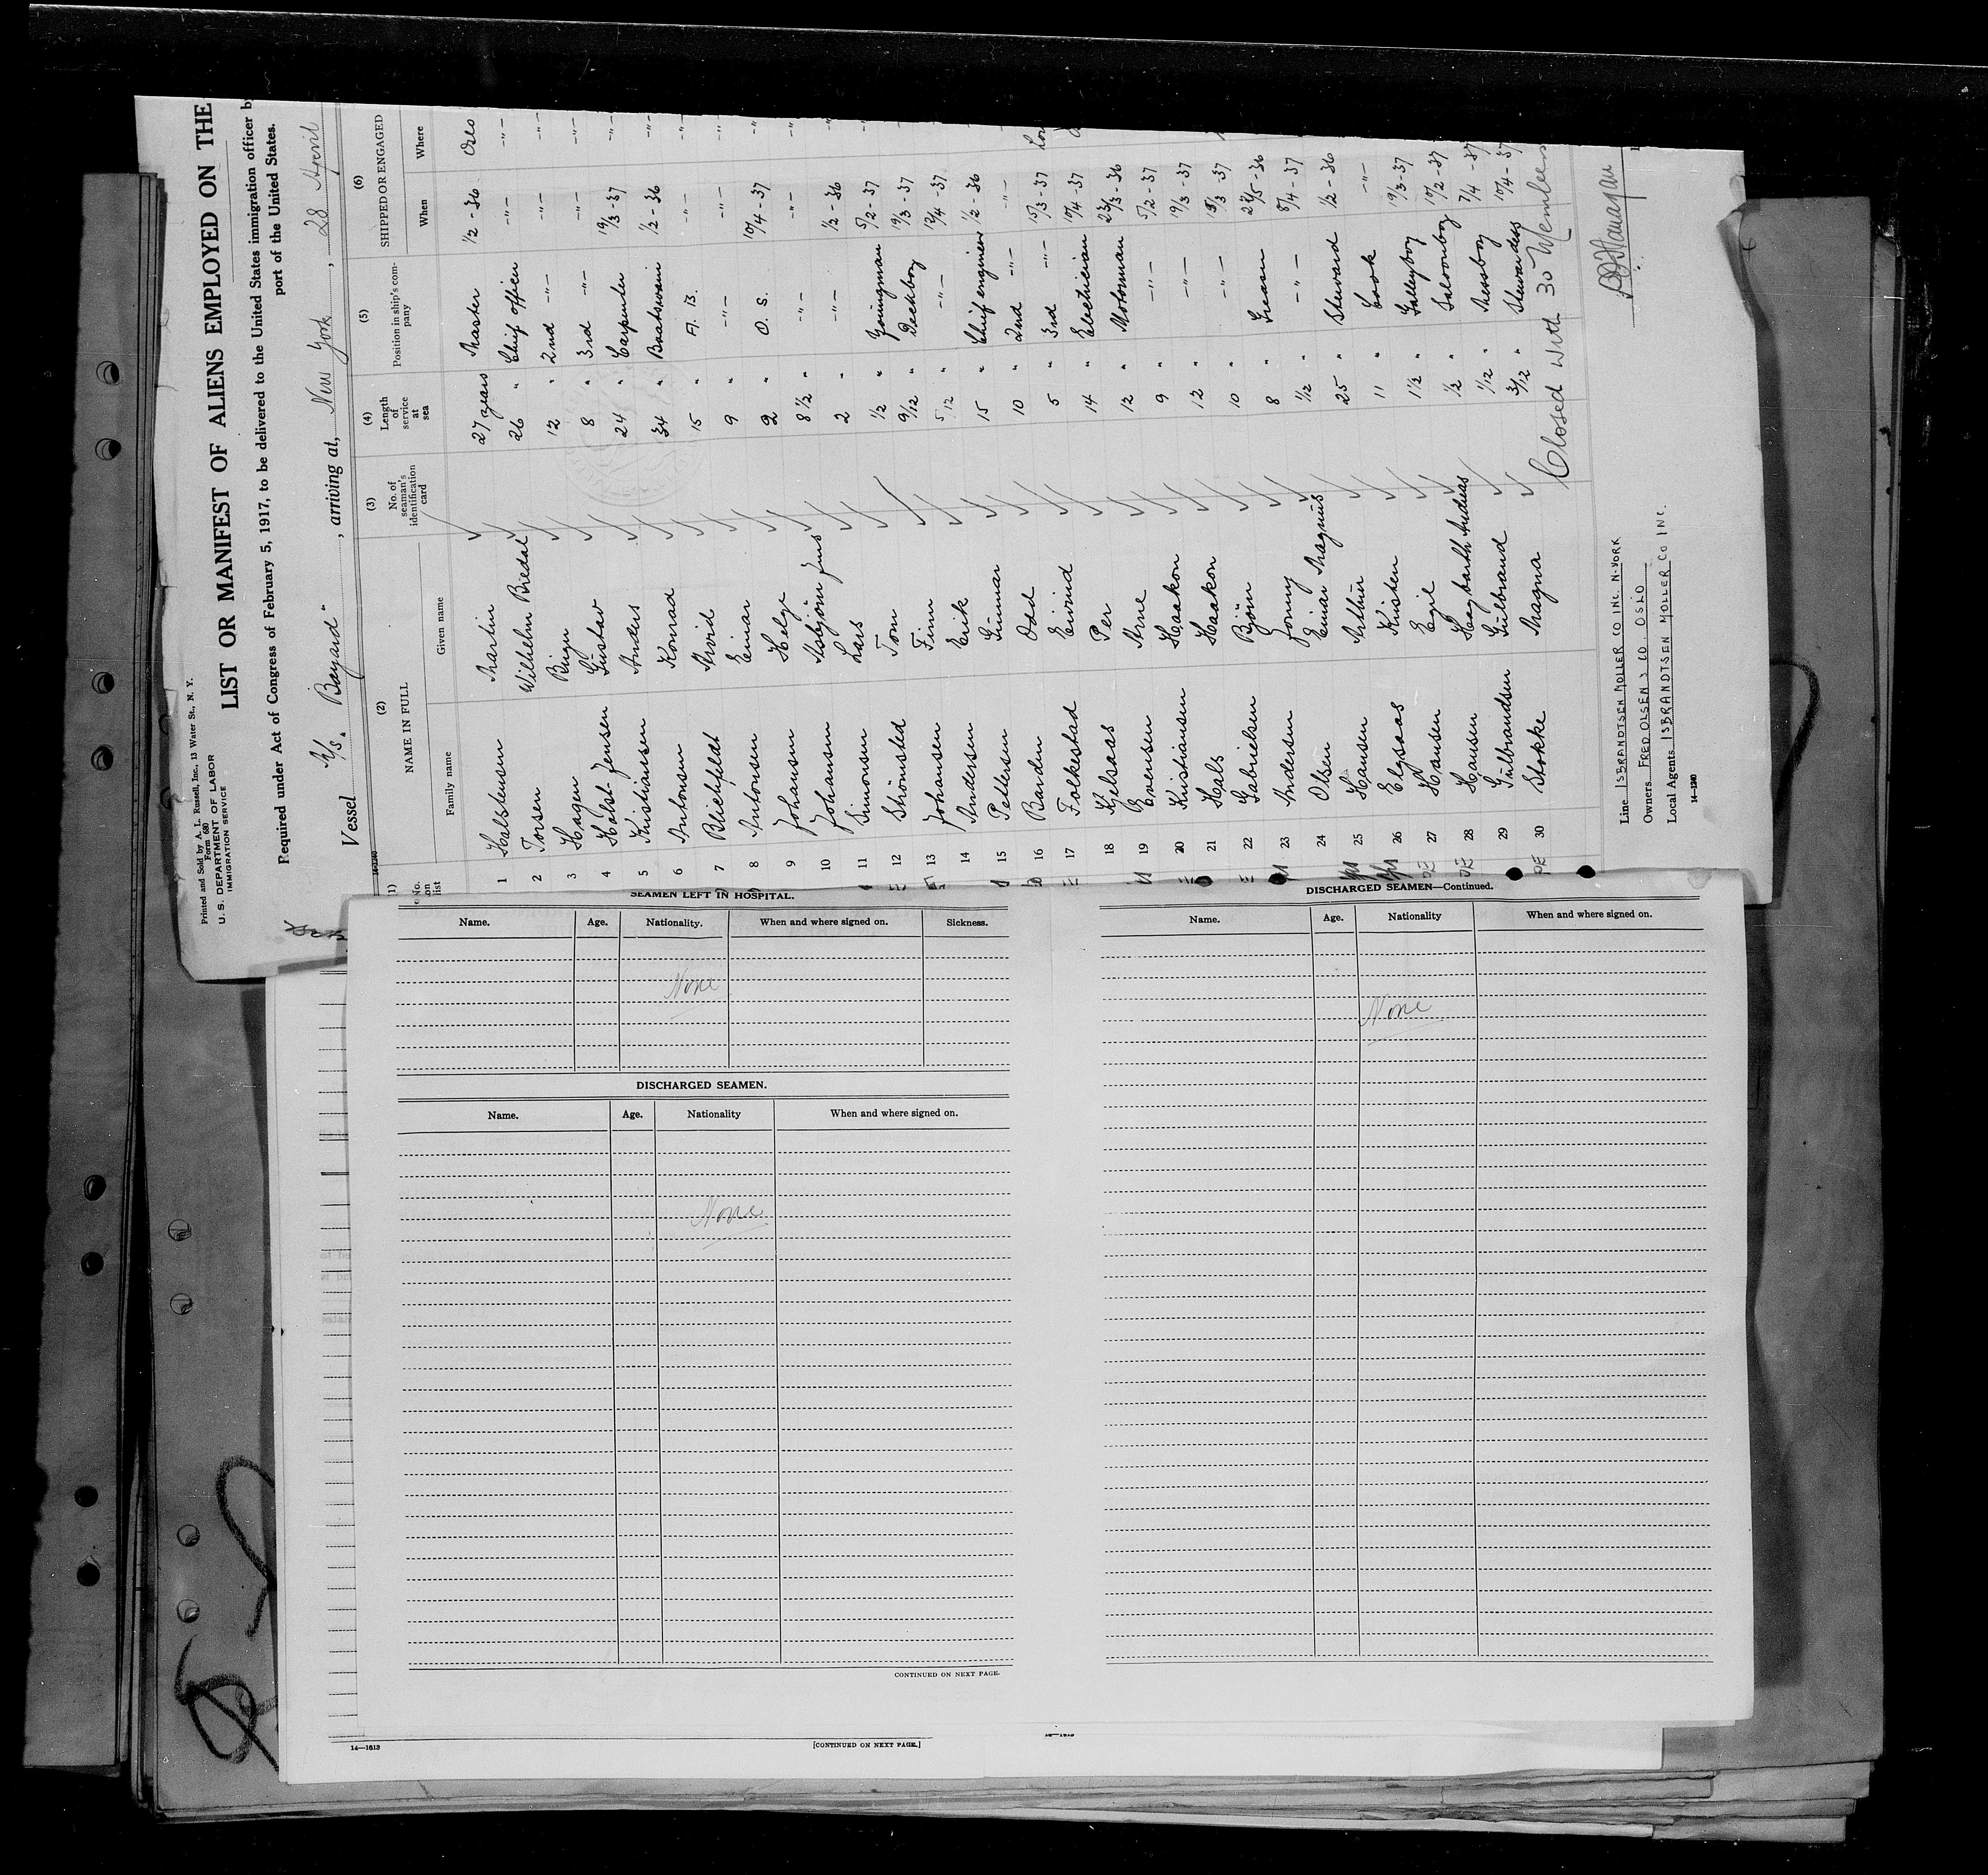 Printed and Sold by A. L. Russell, Inc., 13 Water St., N. Y.
Form 680
U. S. DEPARTMENT OF LABOR
IMMIGRATION SERVICE
LIST OR MANIFEST OF ALIENS EMPLOYED ON THE
Required under Act of Congress of February 5, 1917, to be delivered to the United States immigration officer b
port of the United States.
Vessel M/s. "Bayard" , arriving at, New York , 28 April
(1) (2) (3) (4) (5) (6)
No. on list NAME IN FULL No. of seaman's identification card Length of service at sea Position in ship's company SHIPPED OR ENGAGED
Family name Given name When Where
1 Halstensen Martin 27 years Master 1/2 - 36 Oslo
2 Torsen Wilhelm Bredal 26 " Chief officer -"- -"-
3 Hagen Birger 12 " 2nd -"- -"- -"-
4 Holst-Jensen Gustav 8 " 3rd -"- -"- -"-
5 Kristiansen Anders 24 " Carpenter 19/3 - 37 -"-
6 Antonsen Konrad 34 " Boatswain 1/2 - 36 -"-
7 Blichfeldt Arvid 15 " A. B. -"- -"-
8 Antonsen Einar 9 " -"- -"- -"-
9 Johansen Helge 2 " O. S. 10/4 - 37 -"-
10 Johansen Asbjörn Jens 8 1/2 " -"- -"- -"-
11 Simonsen Lars 2 " -"- 1/2 - 36 -"-
12 Strömsted Tom 1/2 " Youngman 5/2 - 37
13 Johansen Finn 9/12 " Deckboy 19/3 - 37
14 Andersen Erik 5/12 " -"- 12/4 - 37
15 Pettersen Gunnar 15 " Chief engineer 1/2 - 36
16 Barden Odd 10 " 2nd -"- -"-
17 Folkestad Eivind 5 " 3rd -"- 15/3 - 37
18 Kjelsaas Per 14 " Electrician 10/4 - 37
19 Evensen Arne 12 " Motorman 23/3 - 36
20 Kristiansen Haakon 9 " -"- 5/2 - 37
21 Hals Haakon 12 " -"- 19/3 - 37
22 Gabrielsen Björn 10 " -"- 19/3 - 37
23 Andersen Jonny 8 " Greaser 22/5 - 36
24 Olsen Einar Magnus 1/2 " -"- 8/4 - 37
25 Hansen Arthur 25 " Steward 1/2 - 36
26 Elgsaas Kristen 11 " Cook -"-
27 Hansen Egil 1 1/2 " Galleyboy 19/3 - 37
28 Hansen Hagbarth Andreas 1/2 " Saloonboy 10/2 - 37
29 Gulbrandsen Gulbrand 1/12 " Messboy 7/4 - 37
30 Stokke Magna 3/12 " Stewardess 10/4 - 37
Closed with 30 Members
Line ISBRANDTSEN MOLLER CO INC. N-YORK
Owners FRED OLSEN & CO. OSLO
Local Agents ISBRANDTSEN MOLLER CO INC.
14-1240
SEAMEN LEFT IN HOSPITAL.
Name. Age. Nationality. When and where signed on. Sickness.
None
DISCHARGED SEAMEN.
Name. Age. Nationality When and where signed on.
None
CONTINUED ON NEXT PAGE.
DISCHARGED SEAMEN—Continued.
Name. Age. Nationality When and where signed on.
None
14—1613
[CONTINUED ON NEXT PAGE.]